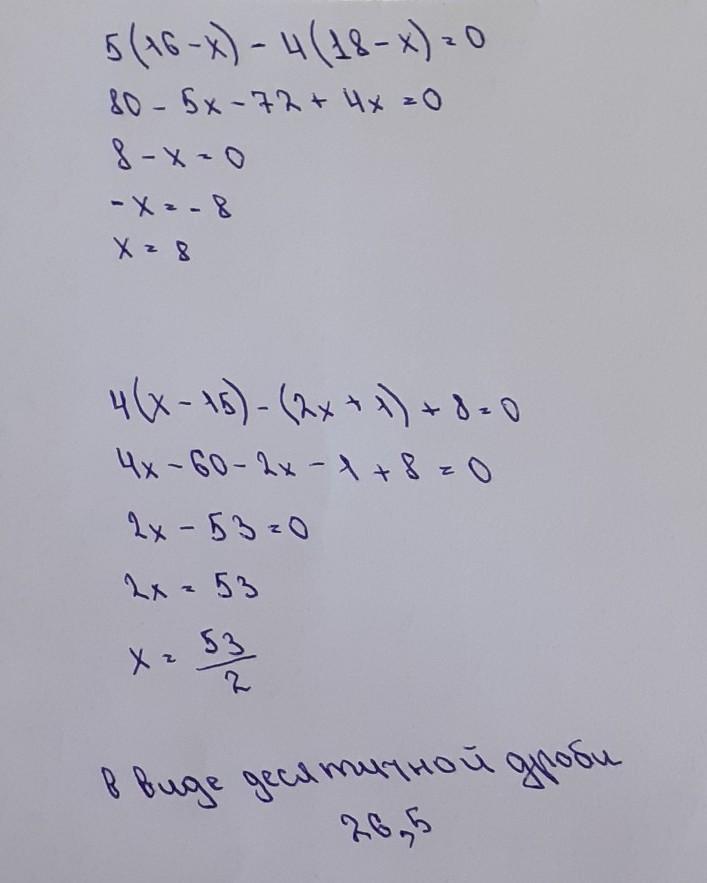 5(16-x) - 4(18-x)=0
80 - 5x - 72 + 4x = 0
8 - x = 0
-x = - 8
x = 8
4(x - 15) - (2x + 1) + 8 = 0
4x - 60 - 2x - 1 + 8 = 0
2x - 53 = 0
2x = 53
x = 53/2
в виде десятичной дроби
26,5